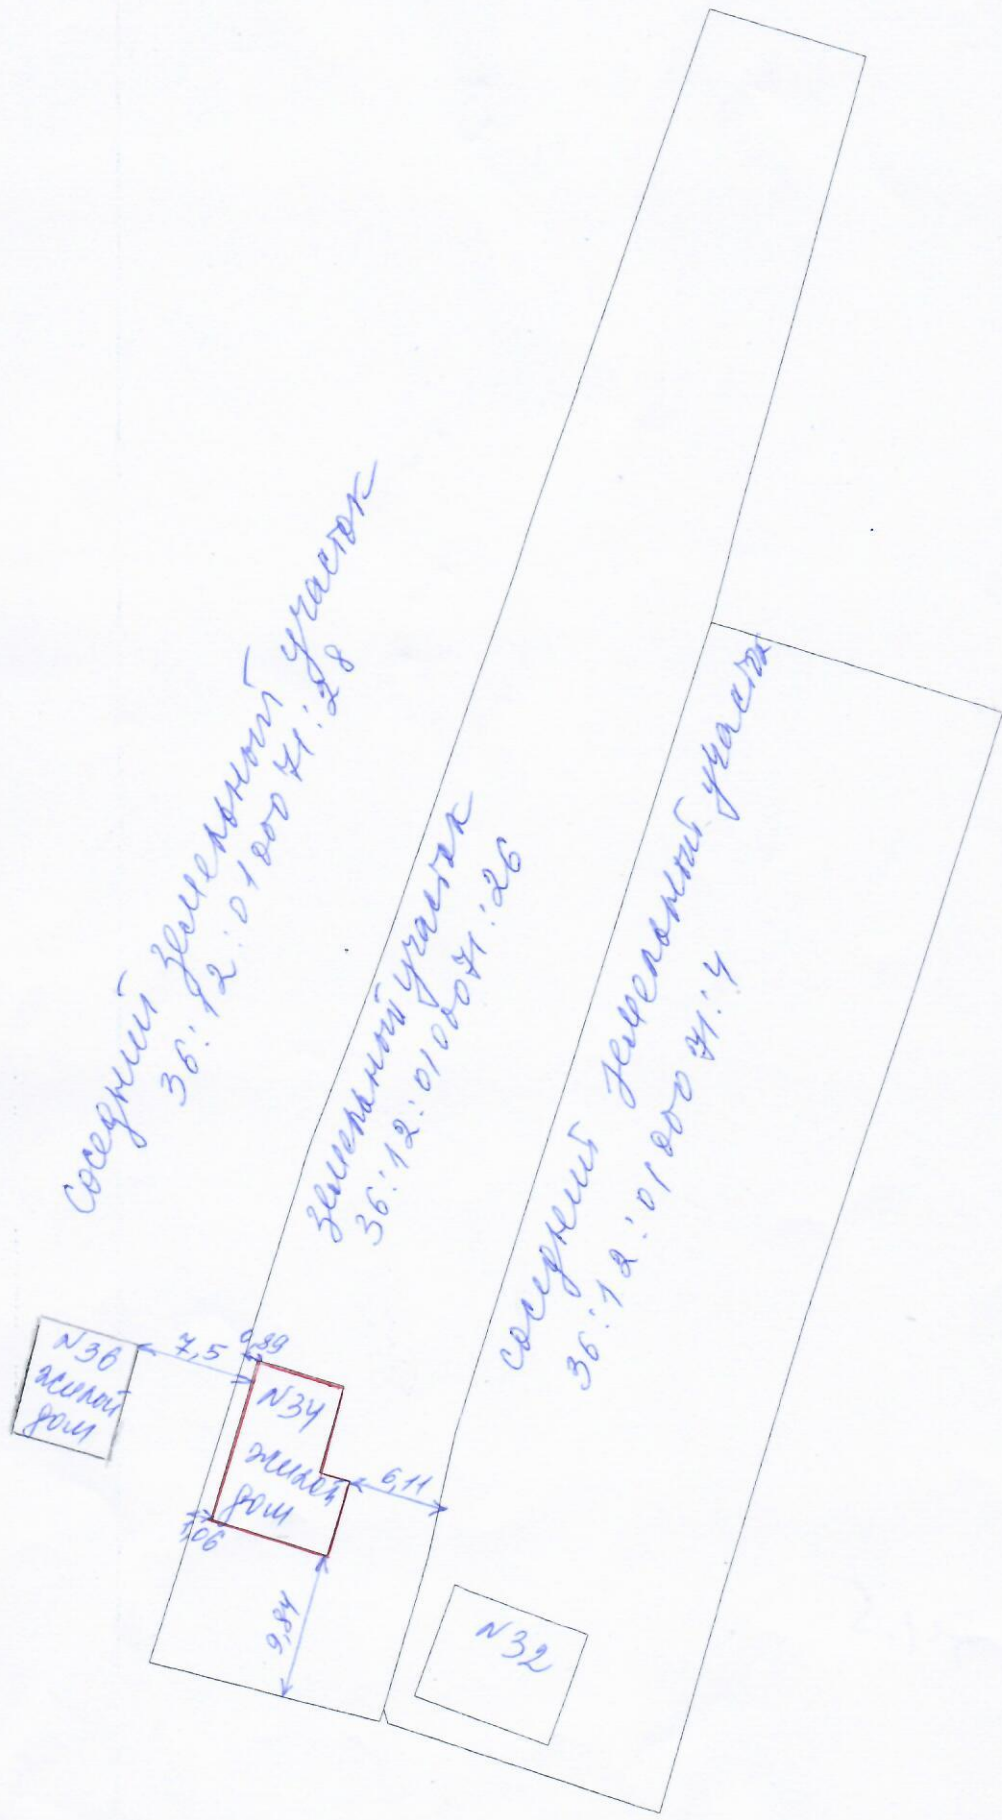 соседний земельный участок
36:12:0100071:28
земельный участок
36:12:0100071:26
соседний земельный участок
36:12:0100071:4
N36
жилой
дом
7,5
0,89
N34
жилой
дом
6,11
1,06
9,84
N32